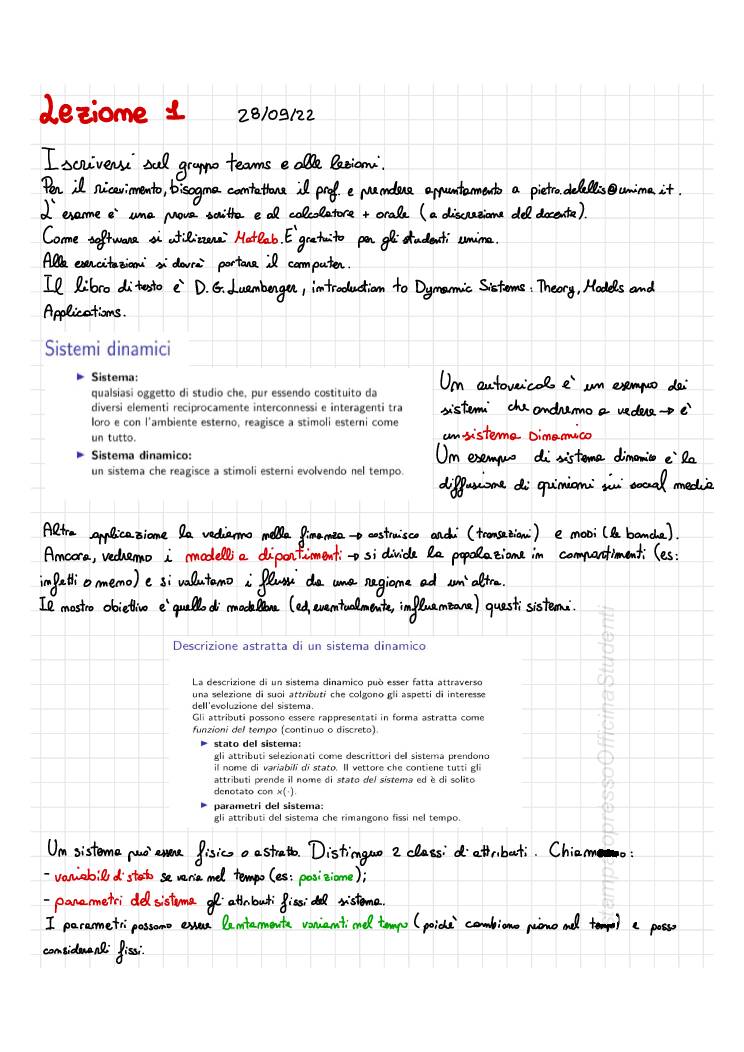 Lezione 1 28/09/22
Iscriversi sul gruppo teams e alle lezioni.
Per il ricevimento, bisogna contattare il prof. e prendere appuntamento a pietro.delellis@unina.it.
L'esame è una prova scritta e al calcolatore + orale (a discrezione del docente).
Come software si utilizzerà Matlab. È gratuito per gli studenti unina.
Alle esercitazioni si dovrà portare il computer.
Il libro di testo è D.G. Luenberger, introduction to Dynamic Sistems: Theory, Models and
Applications.
Sistemi dinamici
► Sistema:
qualsiasi oggetto di studio che, pur essendo costituito da
diversi elementi reciprocamente interconnessi e interagenti tra
loro e con l'ambiente esterno, reagisce a stimoli esterni come
un tutto.
► Sistema dinamico:
un sistema che reagisce a stimoli esterni evolvendo nel tempo.
Un autoveicolo è un esempio dei
sistemi che andremo a vedere → è
un sistema Dinamico
Un esempio di sistema dinamico è la
diffusione di opinioni sui social media
Altra applicazione la vediamo nella finanza → costruisco archi (transazioni) e nodi (le banche).
Ancora, vedremo i modelli a dipartimenti → si divide la popolazione in compartimenti (es:
infetti o meno) e si valutano i flussi da una regione ad un'altra.
Il nostro obiettivo è quello di modellare (ed, eventualmente, influenzare) questi sistemi.
Descrizione astratta di un sistema dinamico
La descrizione di un sistema dinamico può esser fatta attraverso
una selezione di suoi attributi che colgono gli aspetti di interesse
dell'evoluzione del sistema.
Gli attributi possono essere rappresentati in forma astratta come
funzioni del tempo (continuo o discreto).
► stato del sistema:
gli attributi selezionati come descrittori del sistema prendono
il nome di variabili di stato. Il vettore che contiene tutti gli
attributi prende il nome di stato del sistema ed è di solito
denotato con x(·).
► parametri del sistema:
gli attributi del sistema che rimangono fissi nel tempo.
Un sistema può essere fisico o astratto. Distinguo 2 classi di attributi. Chiamo:
- variabili di stato se varia nel tempo (es: posizione);
- parametri del sistema gli attributi fissi del sistema.
I parametri possono essere lentamente varianti nel tempo (poiché cambiano piano nel tempo) e posso
considerarli fissi.
OfficinaStudenti